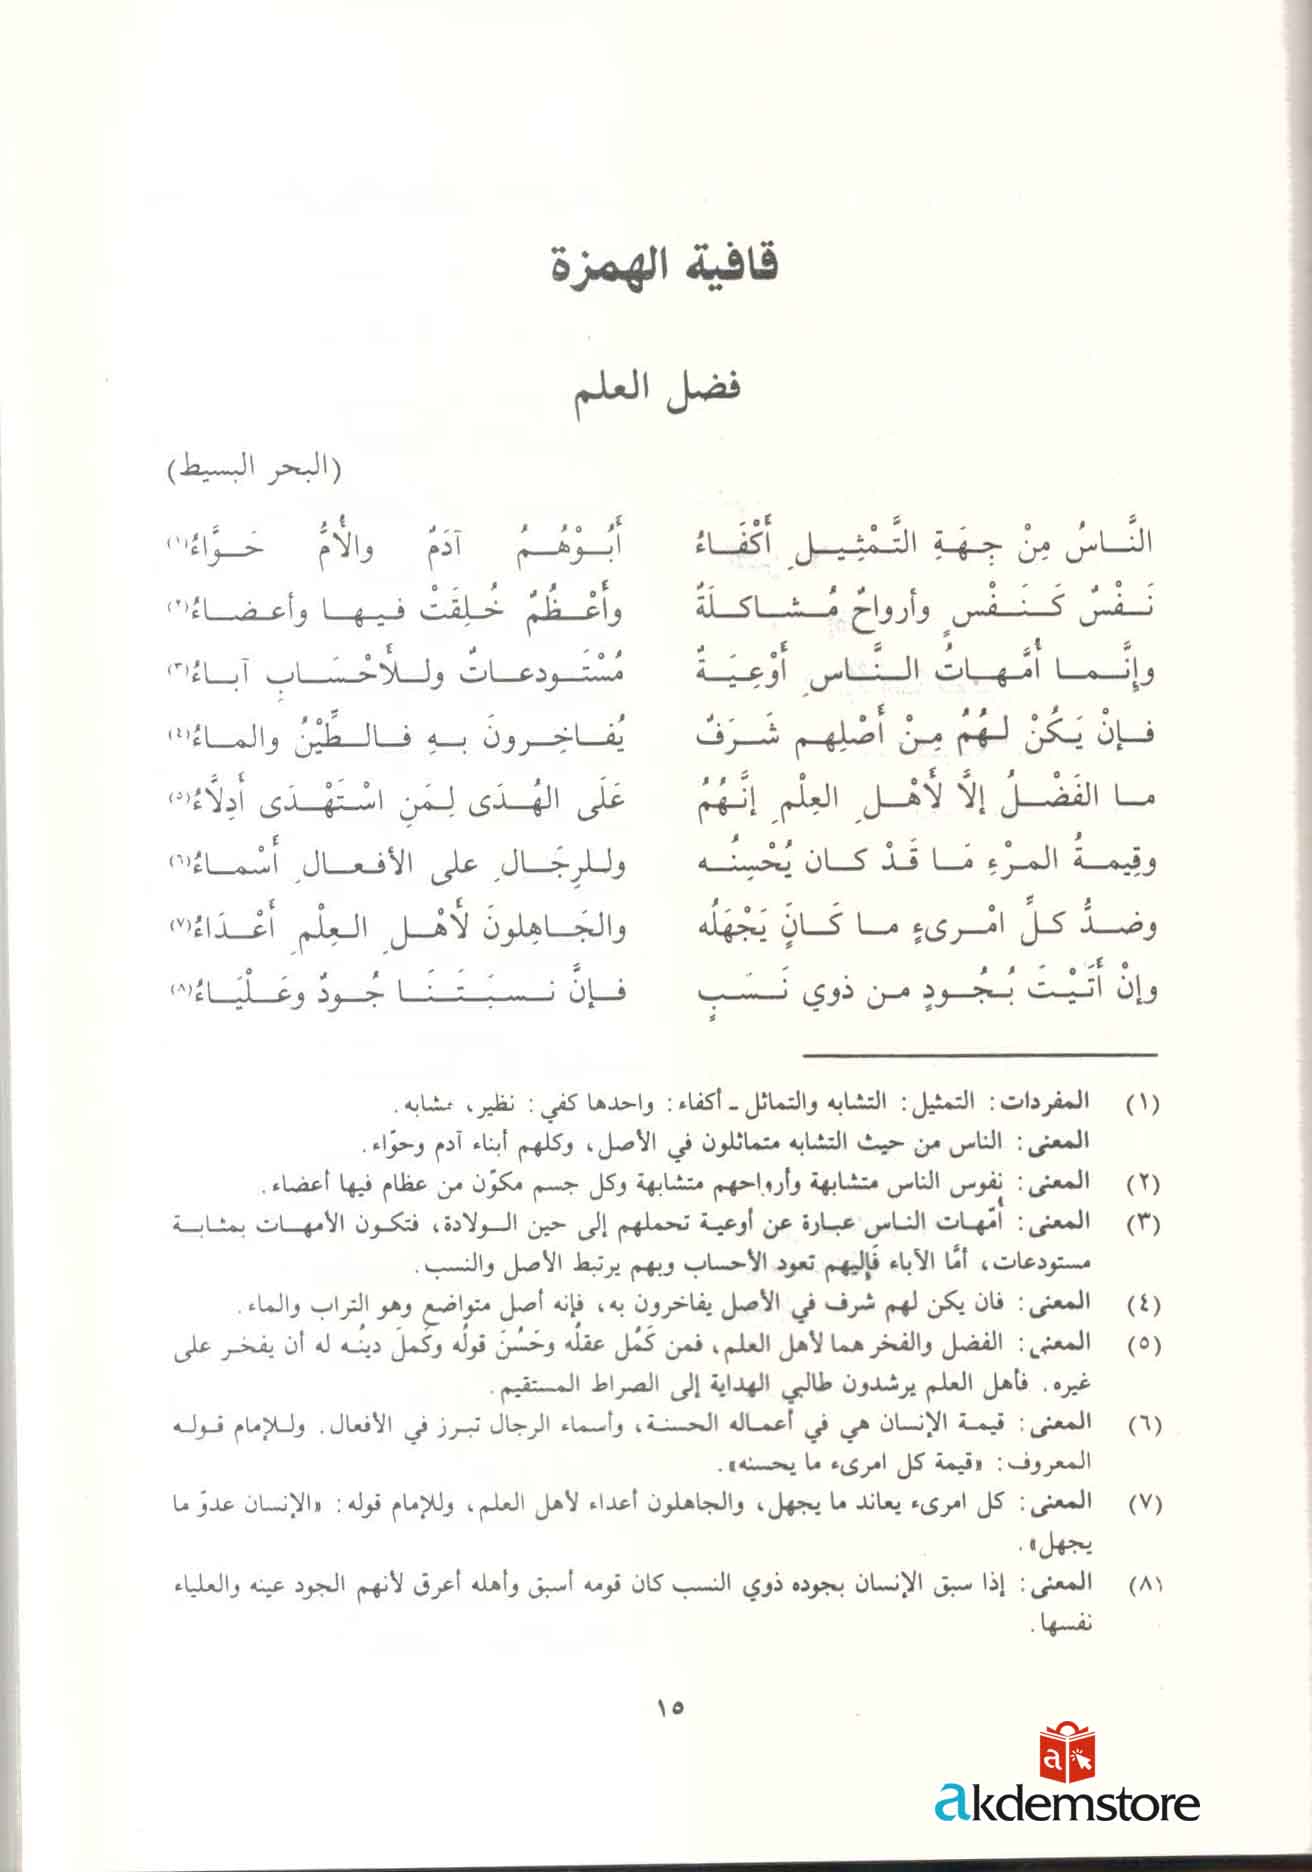 قافية الهمزة
فضل العلم
(البحر البسيط)
النَّاسُ مِنْ جِهَةِ التَّمْثِيلِ أَكْفَاءُ أَبُوْهُمُ آدَمُ والأُمُّ حَوَّاءُ(١)
نَفْسٌ كَنَفْسٍ وأرواحٌ مُشاكلَةٌ وأَعْظُمٌ خُلِقَتْ فيها وأعضاءُ(٢)
وإنَّما أُمَّهاتُ النَّاسِ أَوْعِيَةٌ مُسْتَودعاتٌ وللأَحْسَابِ آباءُ(٣)
فإنْ يَكُنْ لهُمُ مِنْ أَصْلِهم شَرَفٌ يُفاخِرونَ بهِ فالطِّيْنُ والماءُ(٤)
ما الفَضْلُ إلَّا لأَهْلِ العِلْمِ إنَّهُمُ عَلَى الهُدَى لِمَنِ اسْتَهْدَى أَدِلَّاءُ(٥)
وقِيمةُ المرْءِ مَا قَدْ كان يُحْسِنُه وللرِجَالِ على الأفعالِ أَسْماءُ(٦)
وضدُّ كلِّ امْرىءٍ ما كَانَ يَجْهَلُه والجَاهِلونَ لأَهْلِ العِلْمِ أَعْدَاءُ(٧)
وإنْ أَتَيْتَ بُجُودٍ من ذوي نَسَبٍ فإنَّ نسبَتَنَا جُودٌ وعَلْيَاءُ(٨)
(١) المفردات: التمثيل: التشابه والتماثل ـ أكفاء: واحدها كفي: نظير، مشابه.
المعنى: الناس من حيث التشابه متماثلون في الأصل، وكلهم أبناء آدم وحوّاء.
(٢) المعنى: نفوس الناس متشابهة وأرواحهم متشابهة وكل جسم مكوّن من عظام فيها أعضاء.
(٣) المعنى: أمّهات الناس عبارة عن أوعية تحملهم إلى حين الولادة، فتكون الأمهات بمثابة
مستودعات، أمَّا الآباء فَإليهم تعود الأحساب وبهم يرتبط الأصل والنسب.
(٤) المعنى: فان يكن لهم شرف في الأصل يفاخرون به، فإنه أصل متواضع وهو التراب والماء.
(٥) المعنى: الفضل والفخر هما لأهل العلم، فمن كَمُل عقلُه وحَسُنَ قولُه وكَملَ دينُه له أن يفخر على
غيره. فأهل العلم يرشدون طالبي الهداية إلى الصراط المستقيم.
(٦) المعنى: قيمة الإنسان هي في أعماله الحسنة، وأسماء الرجال تبرز في الأفعال. وللإمام قوله
المعروف: «قيمة كل امرىء ما يحسنه».
(٧) المعنى: كل امرىء يعاند ما يجهل، والجاهلون أعداء لأهل العلم، وللإمام قوله: «الإنسان عدوّ ما
يجهل».
(٨) المعنى: إذا سبق الإنسان بجوده ذوي النسب كان قومه أسبق وأهله أعرق لأنهم الجود عينه والعلياء
نفسها.
١٥
a
akdemstore